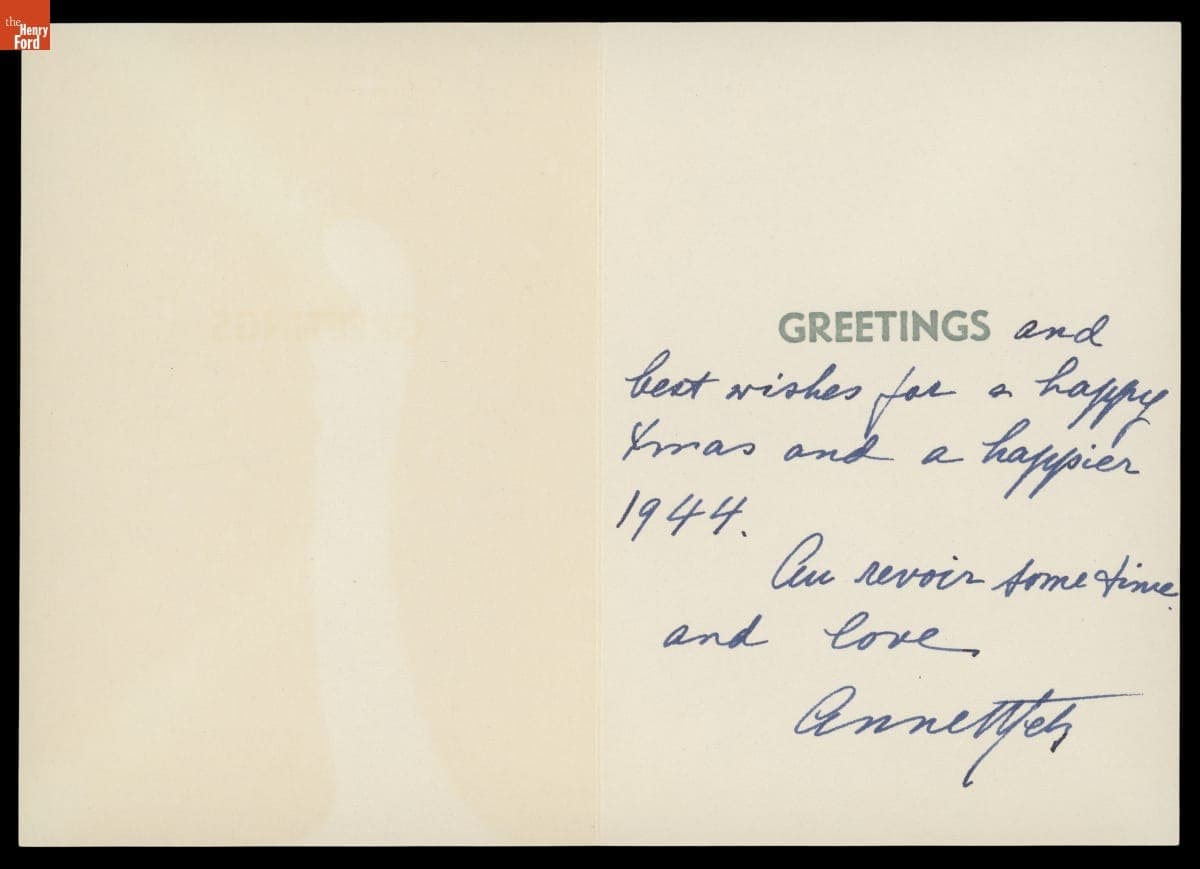 the
Henry
Ford
GREETINGS and
best wishes for a happy
Xmas and a happier
1944.
Au revoir sometime
and love